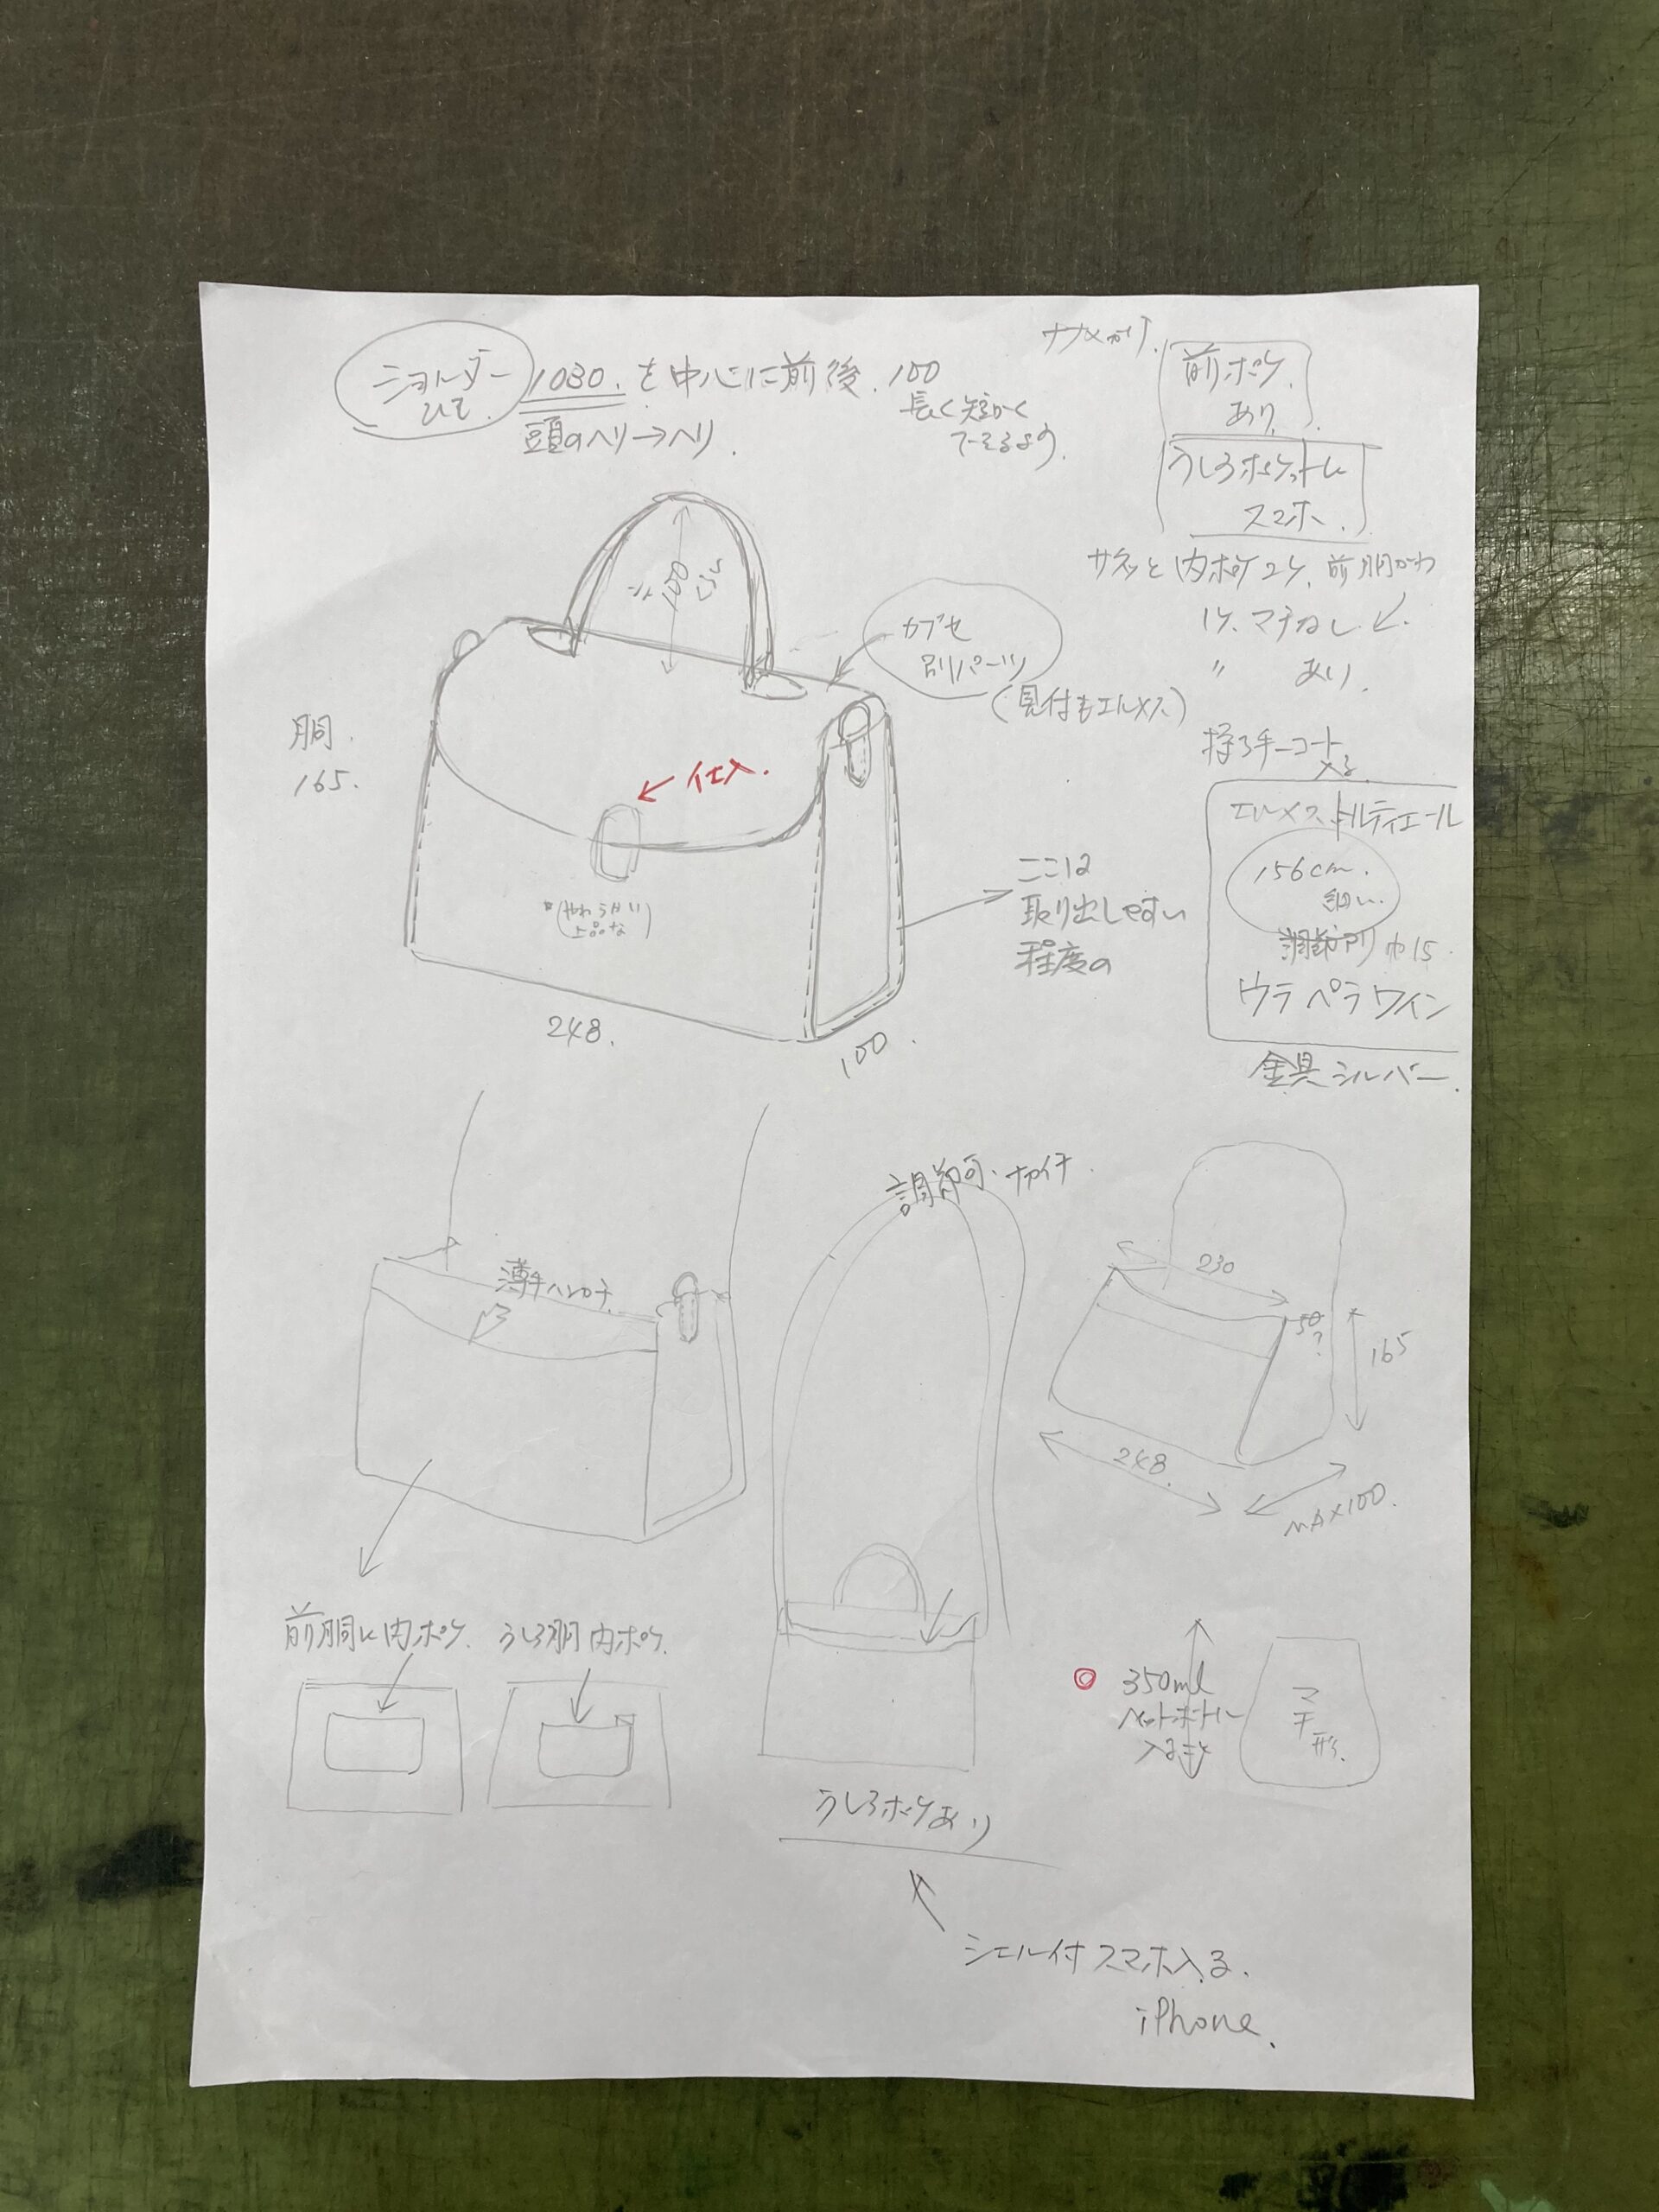 ショルダー
ひも.
1030. を中心に前後. 100
長く短かく
できるよう.
頭のヘリ→ヘリ.
ナナメがけ.
前ポケ.
あり.
うしろポケットに
スマホ.
内ポケ2ケ. 前胴がわ
1ケ. マチなし ↙.
〃 あり.
≒100くらい
カブセ
別パーツ
(見付もエルメス)
胴.
165.
← 仕入.
持ち手コート
入る.
エルメス トルティエール
156cm.
細い.
巾15.
ウラ ペラ ワイン
金具シルバー.
ここは
取り出しやすい
程度の
(やわらかい
上品な)
248.
100.
調節可.
薄手ハンカチ.
230
50
?
165
248.
MAX100.
前胴に内ポケ.
うしろ胴内ポケ.
350ml
ペットボトル
入ること
マチ形.
うしろポケあり
シェル付スマホ入る.
iPhone.